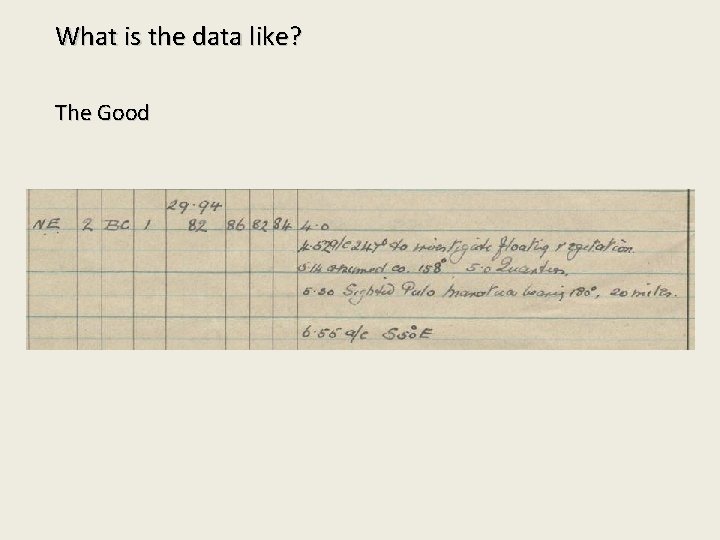 What is the data like?
The Good
29.94
NE 2 BC 1 82 86 82 84 4.0
4.52 a/c 247° to investigate floating vegetation
5.14 assumed co. 158°. 5.0 Quarters.
5.30 Sighted Pulo bearing 180°, 20 miles.
6.55 a/c S50°E